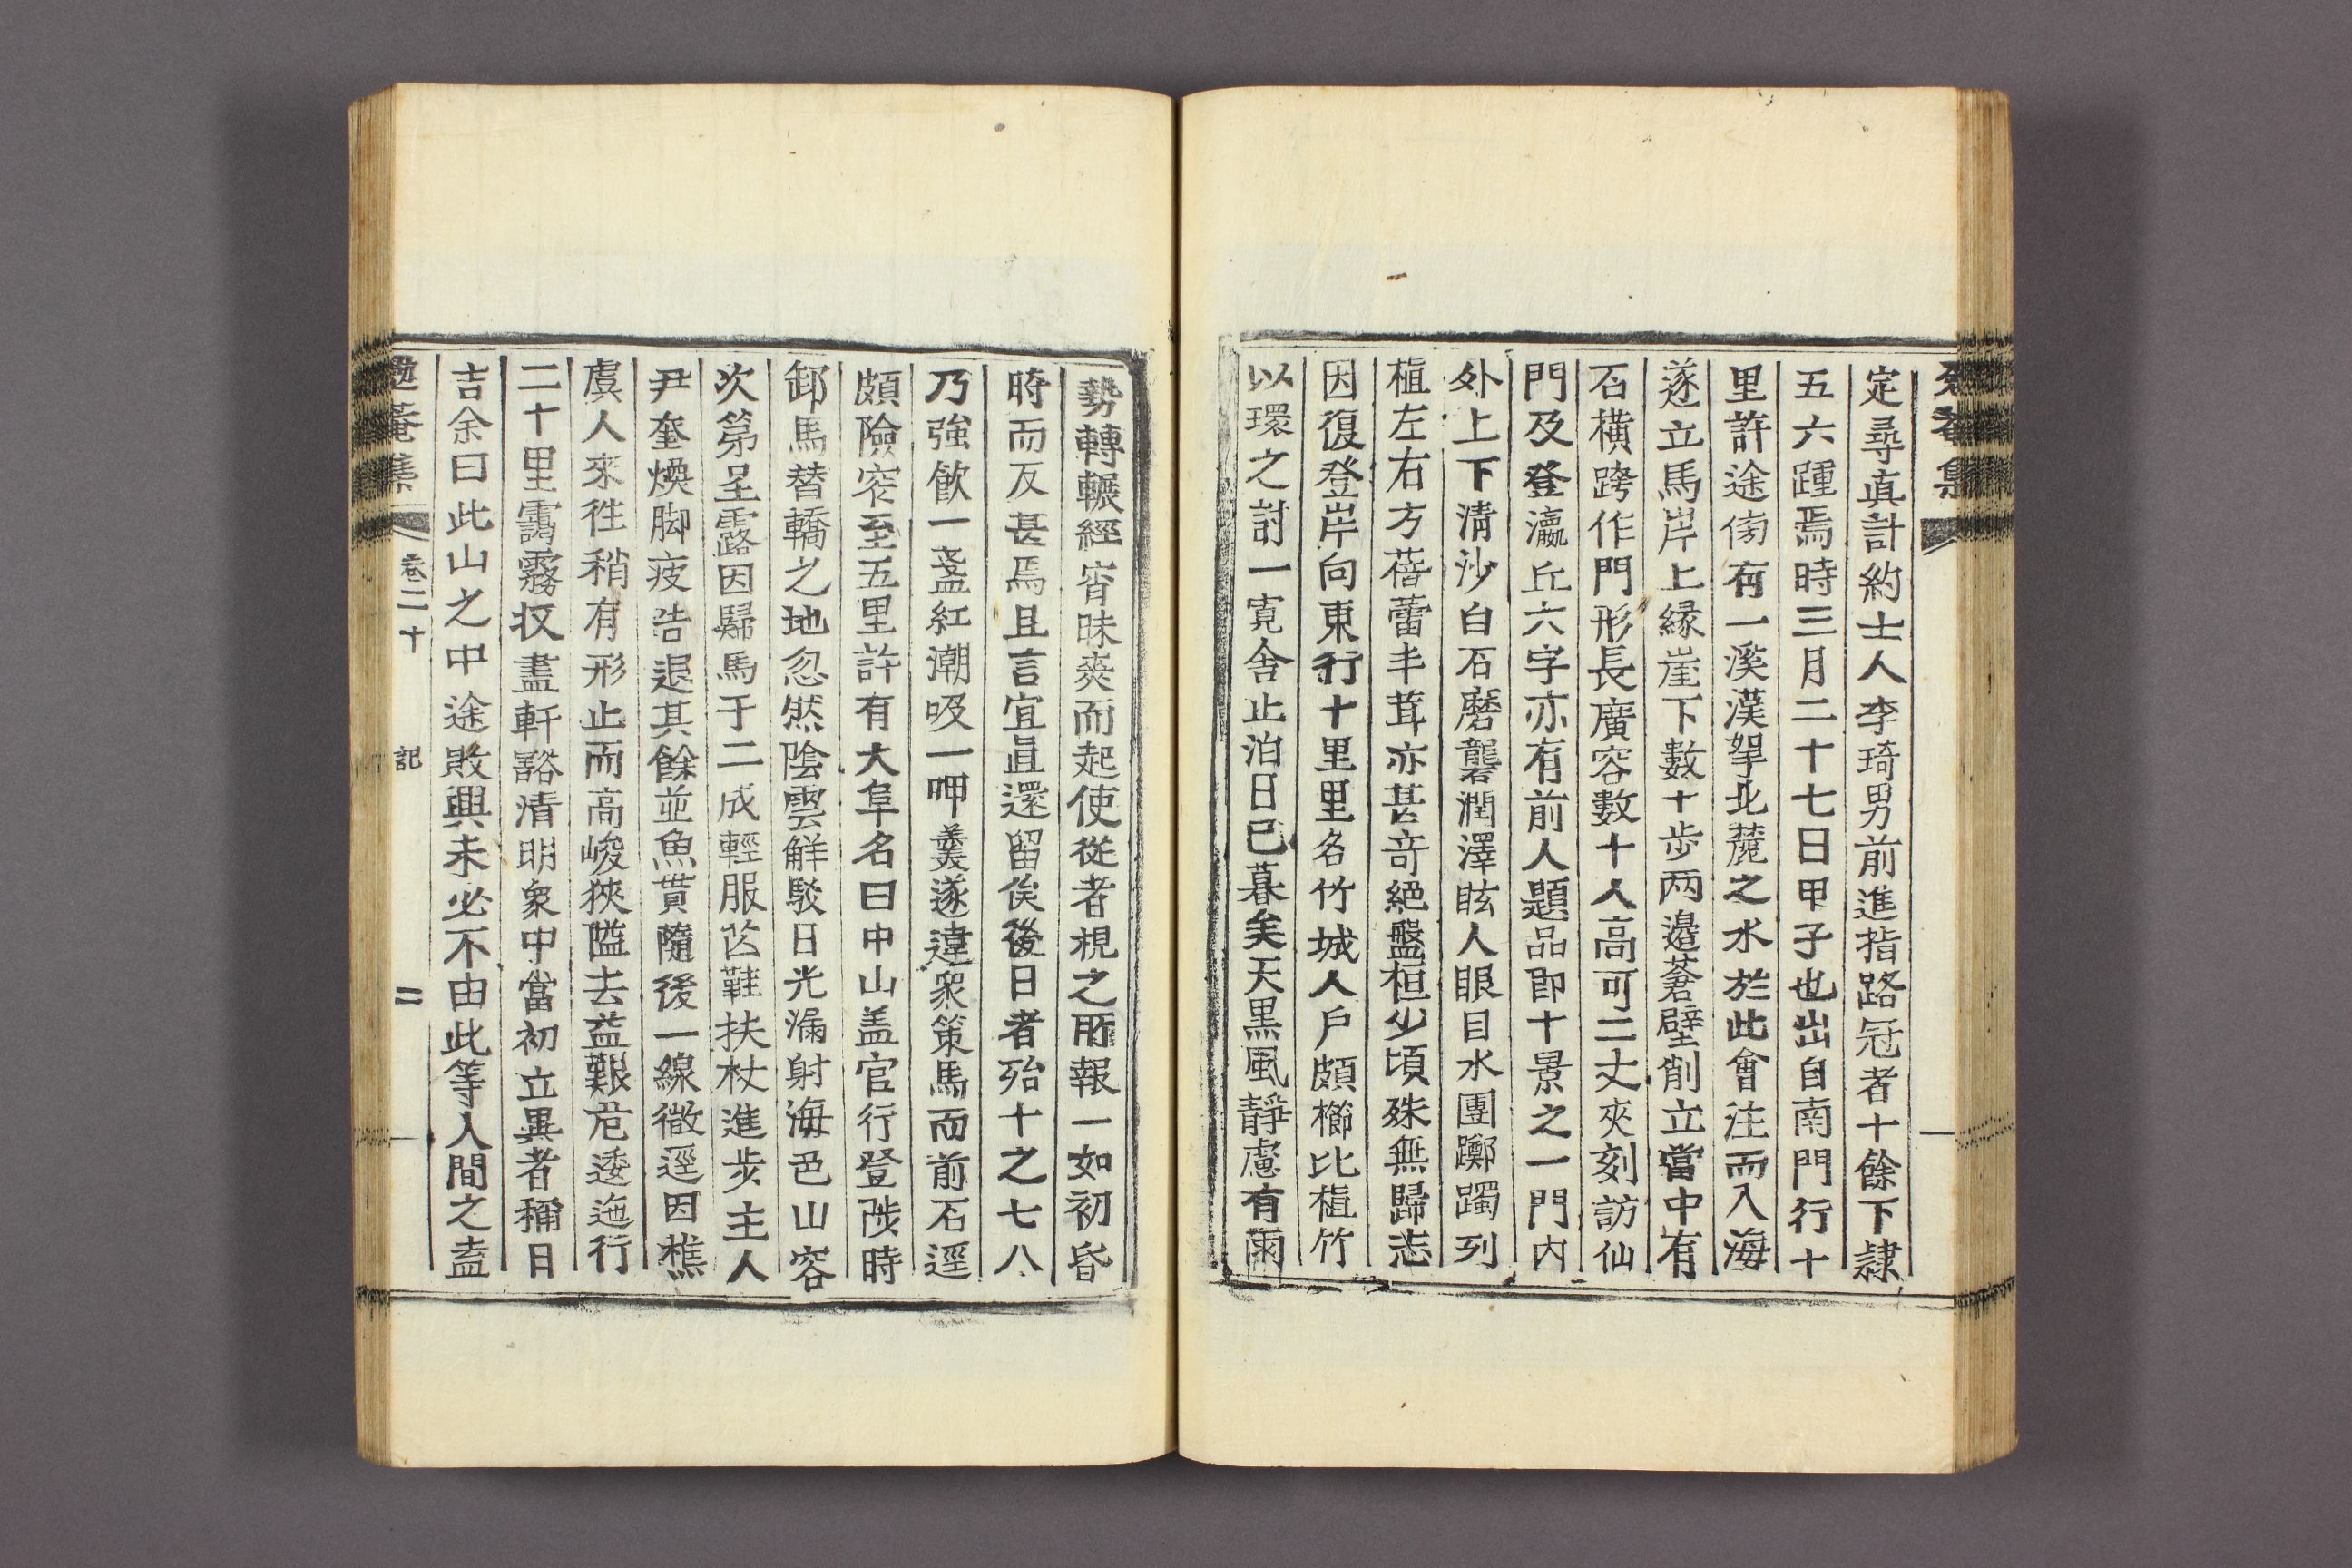 定尋眞計約士人李琦男前進指路冠者十餘下隷
五六踵焉時三月二十七日甲子也出自南門行十
里許途傍有一溪漢拏北麓之水於此會注而入海
遂立馬岸上緣崖下數十步两邉蒼壁削立當中有
石橫跨作門形長廣容數十人高可二丈夾刻訪仙
門及登瀛丘六字亦有前人題品卽十景之一門內
外上下淸沙白石磨礱潤澤眩人眼目水團躑躅列
植左右方蓓蕾丰茸亦甚竒絕盤桓少頃殊無歸志
因復登岸向東行十里里名竹城人戶頗櫛比植竹
以環之討一寛舍止泊日已暮矣天黑風靜慮有雨
勢轉輾經宵昧爽而起使從者視之所報一如初昏
時而反甚焉且言宜直還留俟後日者殆十之七八
乃強飮一盞紅潮吸一呷羹遂違衆策馬而前石逕
頗險窄至五里許有大阜名曰中山盖官行登陟時
卸馬替轎之地忽然陰雲觧駁日光漏射海色山容
次第呈露因歸馬于二成輕服芒鞋扶杖進步主人
尹奎煥脚疲告退其餘並魚貫隨後一線微逕因樵
虞人來徃稍有形止而高峻狹隘去益艱危逶迤行
二十里靄霧収盡軒豁淸明衆中當初立異者稱日
吉余曰此山之中途敗興未必不由此等人間之盍
勉菴集
卷二十
記
二